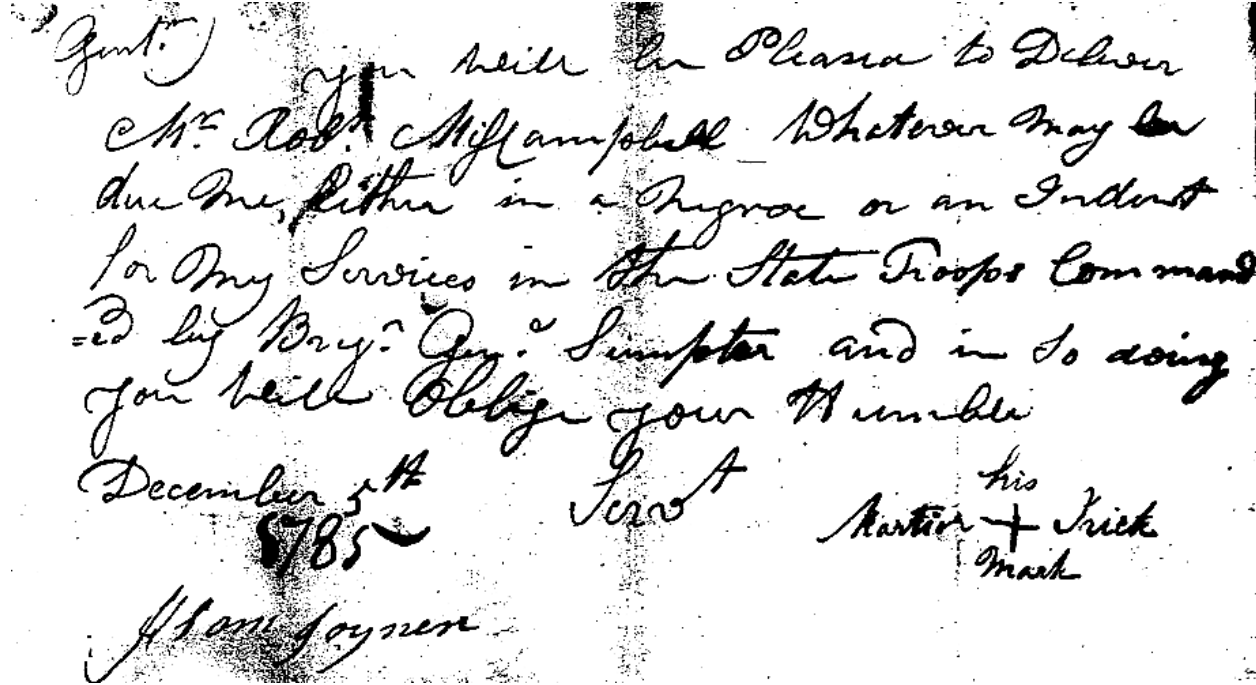 Gentn)
you will be Pleased to Deliver
Mr. Robt. McCampbell Whatever may be
due me, Either in a Negroe or an Indent
for My Services in the State Troops Command
=ed by Brigr. Genl. Sumpter and in So doing
you will Oblige your Humble
December 5th Servt his
1785 Martin + Trick
Mark
Joyner